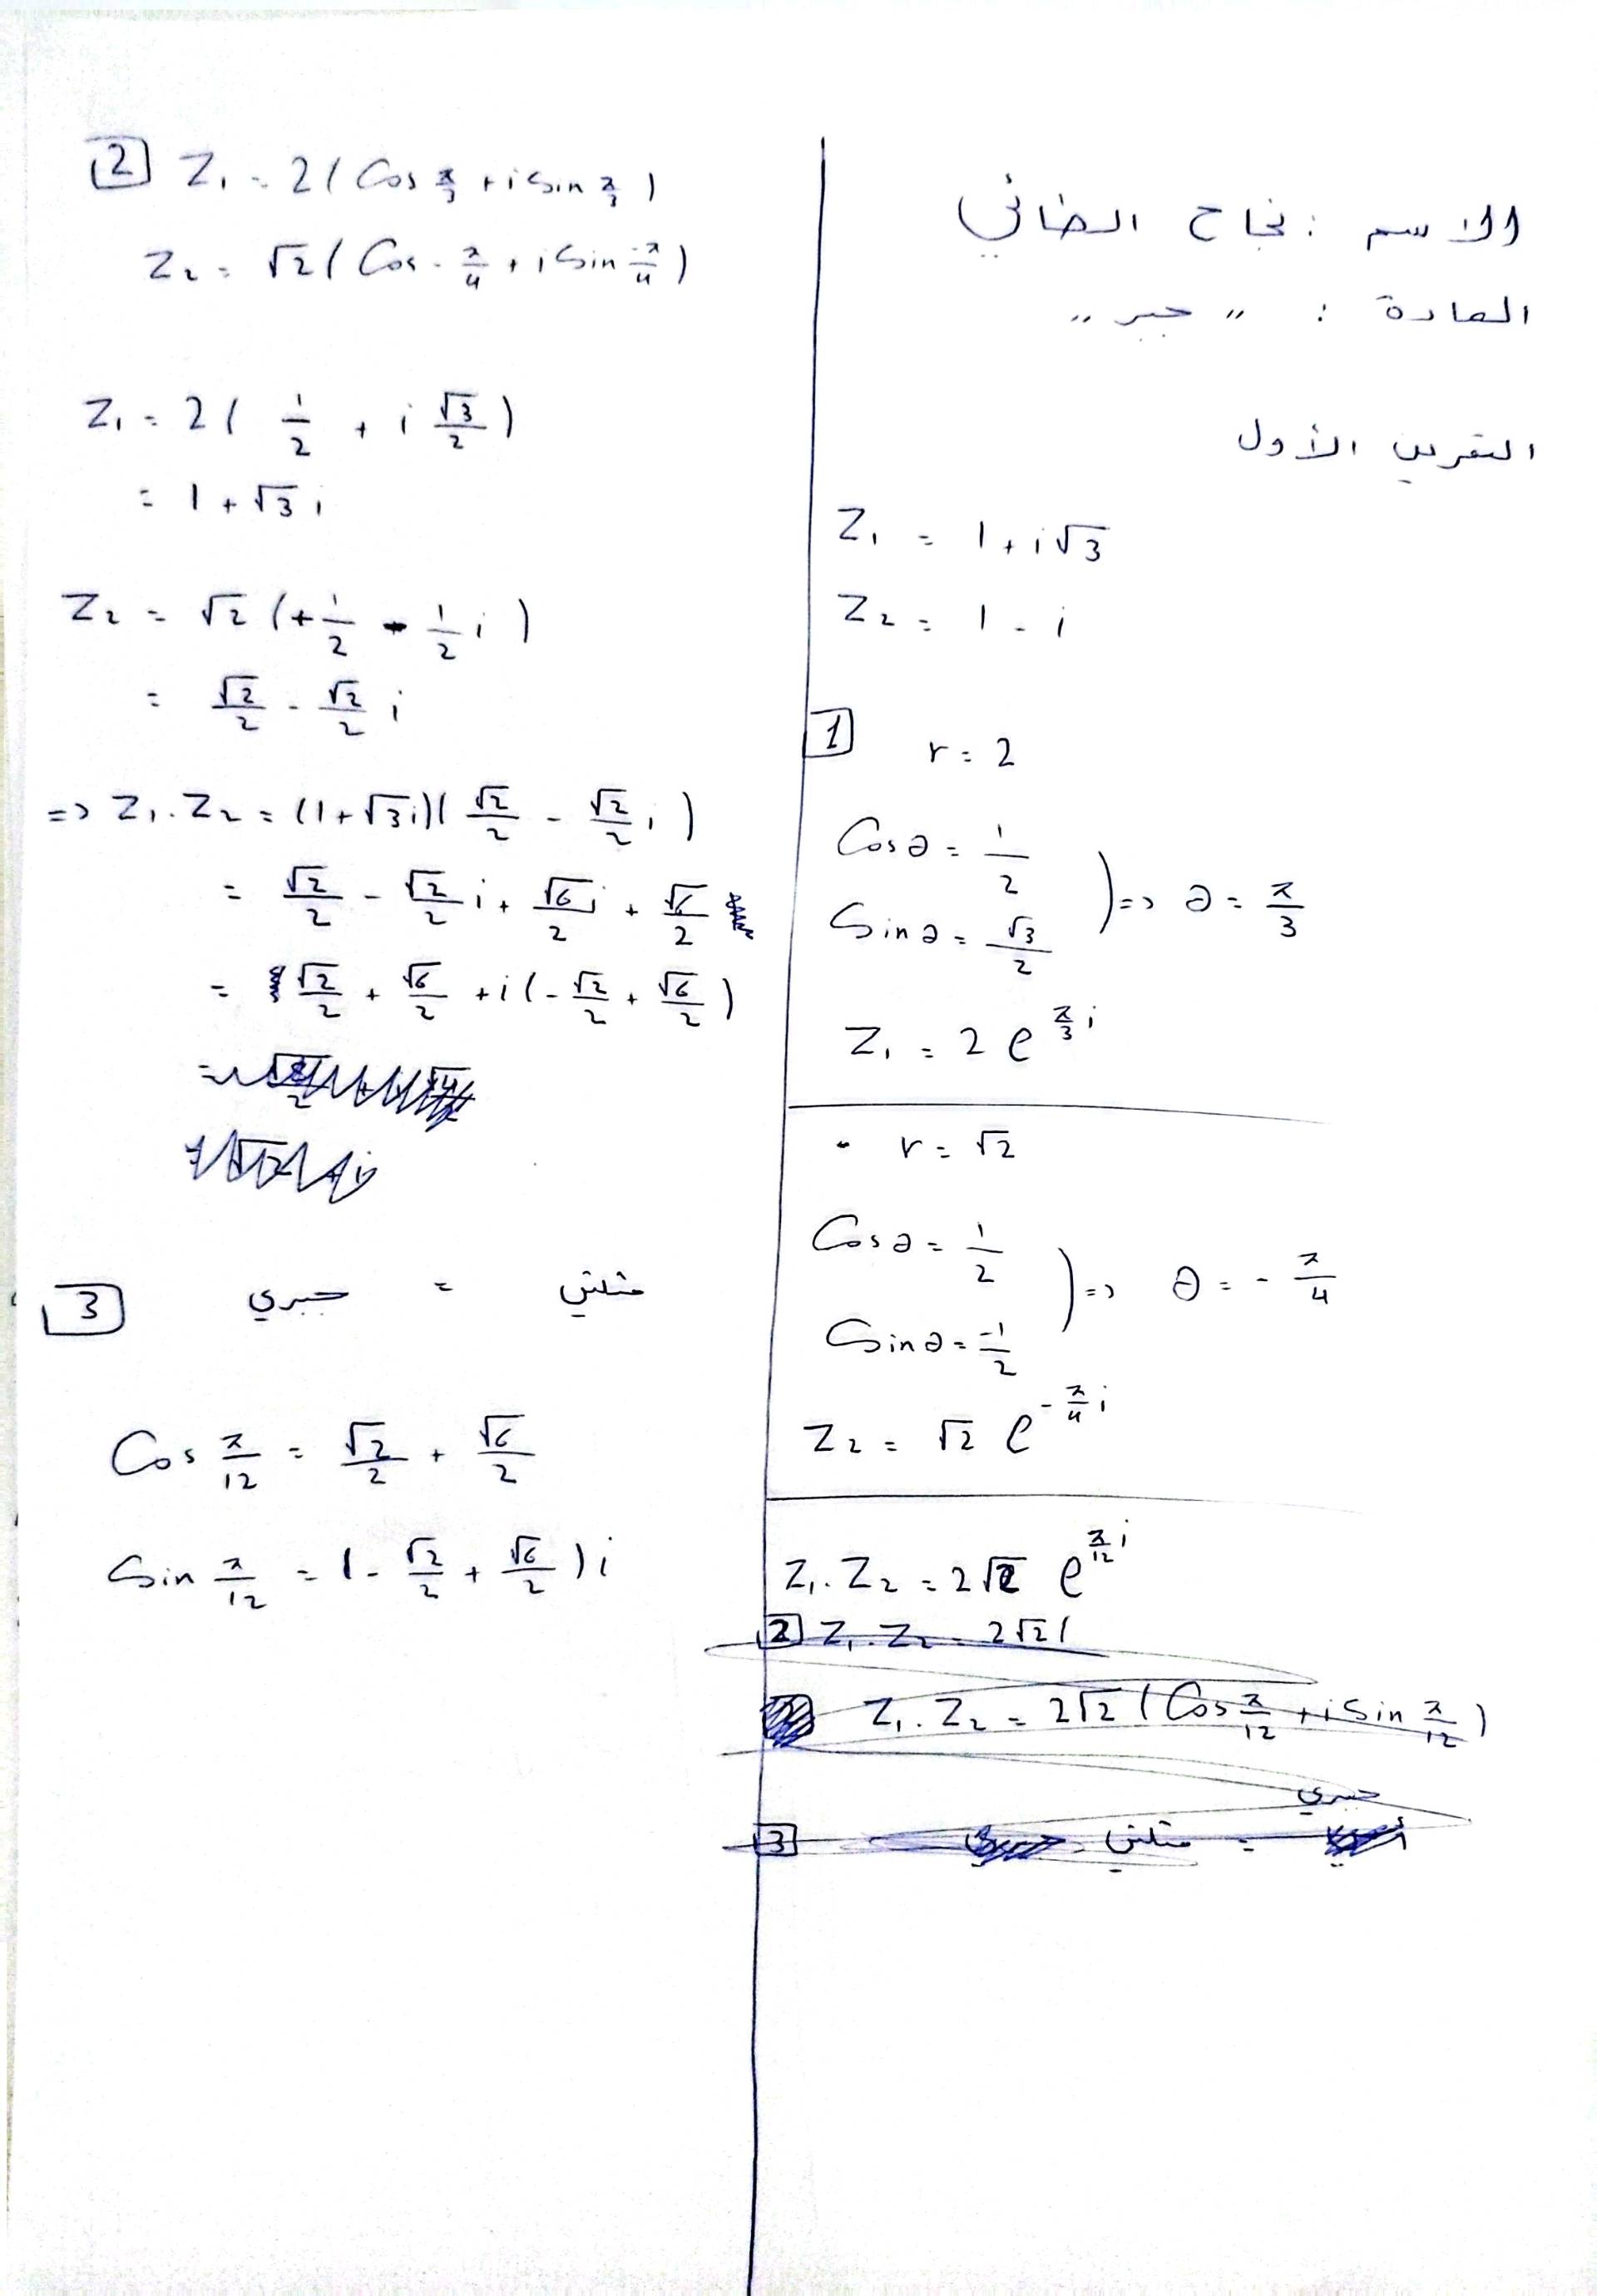 الاسم : نجاح الضاني
المادة : " جبر "
التمرين الأول
Z₁ = 1 + i√3
Z₂ = 1 - i
1 r = 2
Cos θ = 1/2
Sin θ = √3/2 ) => θ = π/3
Z₁ = 2 e^(π/3 i)
- r = √2
Cos θ = 1/2
Sin θ = -1/2 ) => θ = - π/4
Z₂ = √2 e^(-π/4 i)
Z₁ . Z₂ = 2√2 e^(π/12 i)
2 Z₁ . Z₂ = 2√2 (
Z₁ . Z₂ = 2√2 ( Cos π/12 + i Sin π/12 )
جبري
3 = مثلثي
2 Z₁ = 2 ( Cos π/3 + i Sin π/3 )
Z₂ = √2 ( Cos - π/4 + i Sin -π/4 )
Z₁ = 2 ( 1/2 + i √3/2 )
= 1 + √3 i
Z₂ = √2 ( + 1/2 - 1/2 i )
= √2/2 - √2/2 i
=> Z₁ . Z₂ = (1 + √3 i)( √2/2 - √2/2 i )
= √2/2 - √2/2 i + √6 i/2 + √6/2
= √2/2 + √6/2 + i ( - √2/2 + √6/2 )
3 مثلثي = جبري
Cos π/12 = √2/2 + √6/2
Sin π/12 = ( - √2/2 + √6/2 ) i